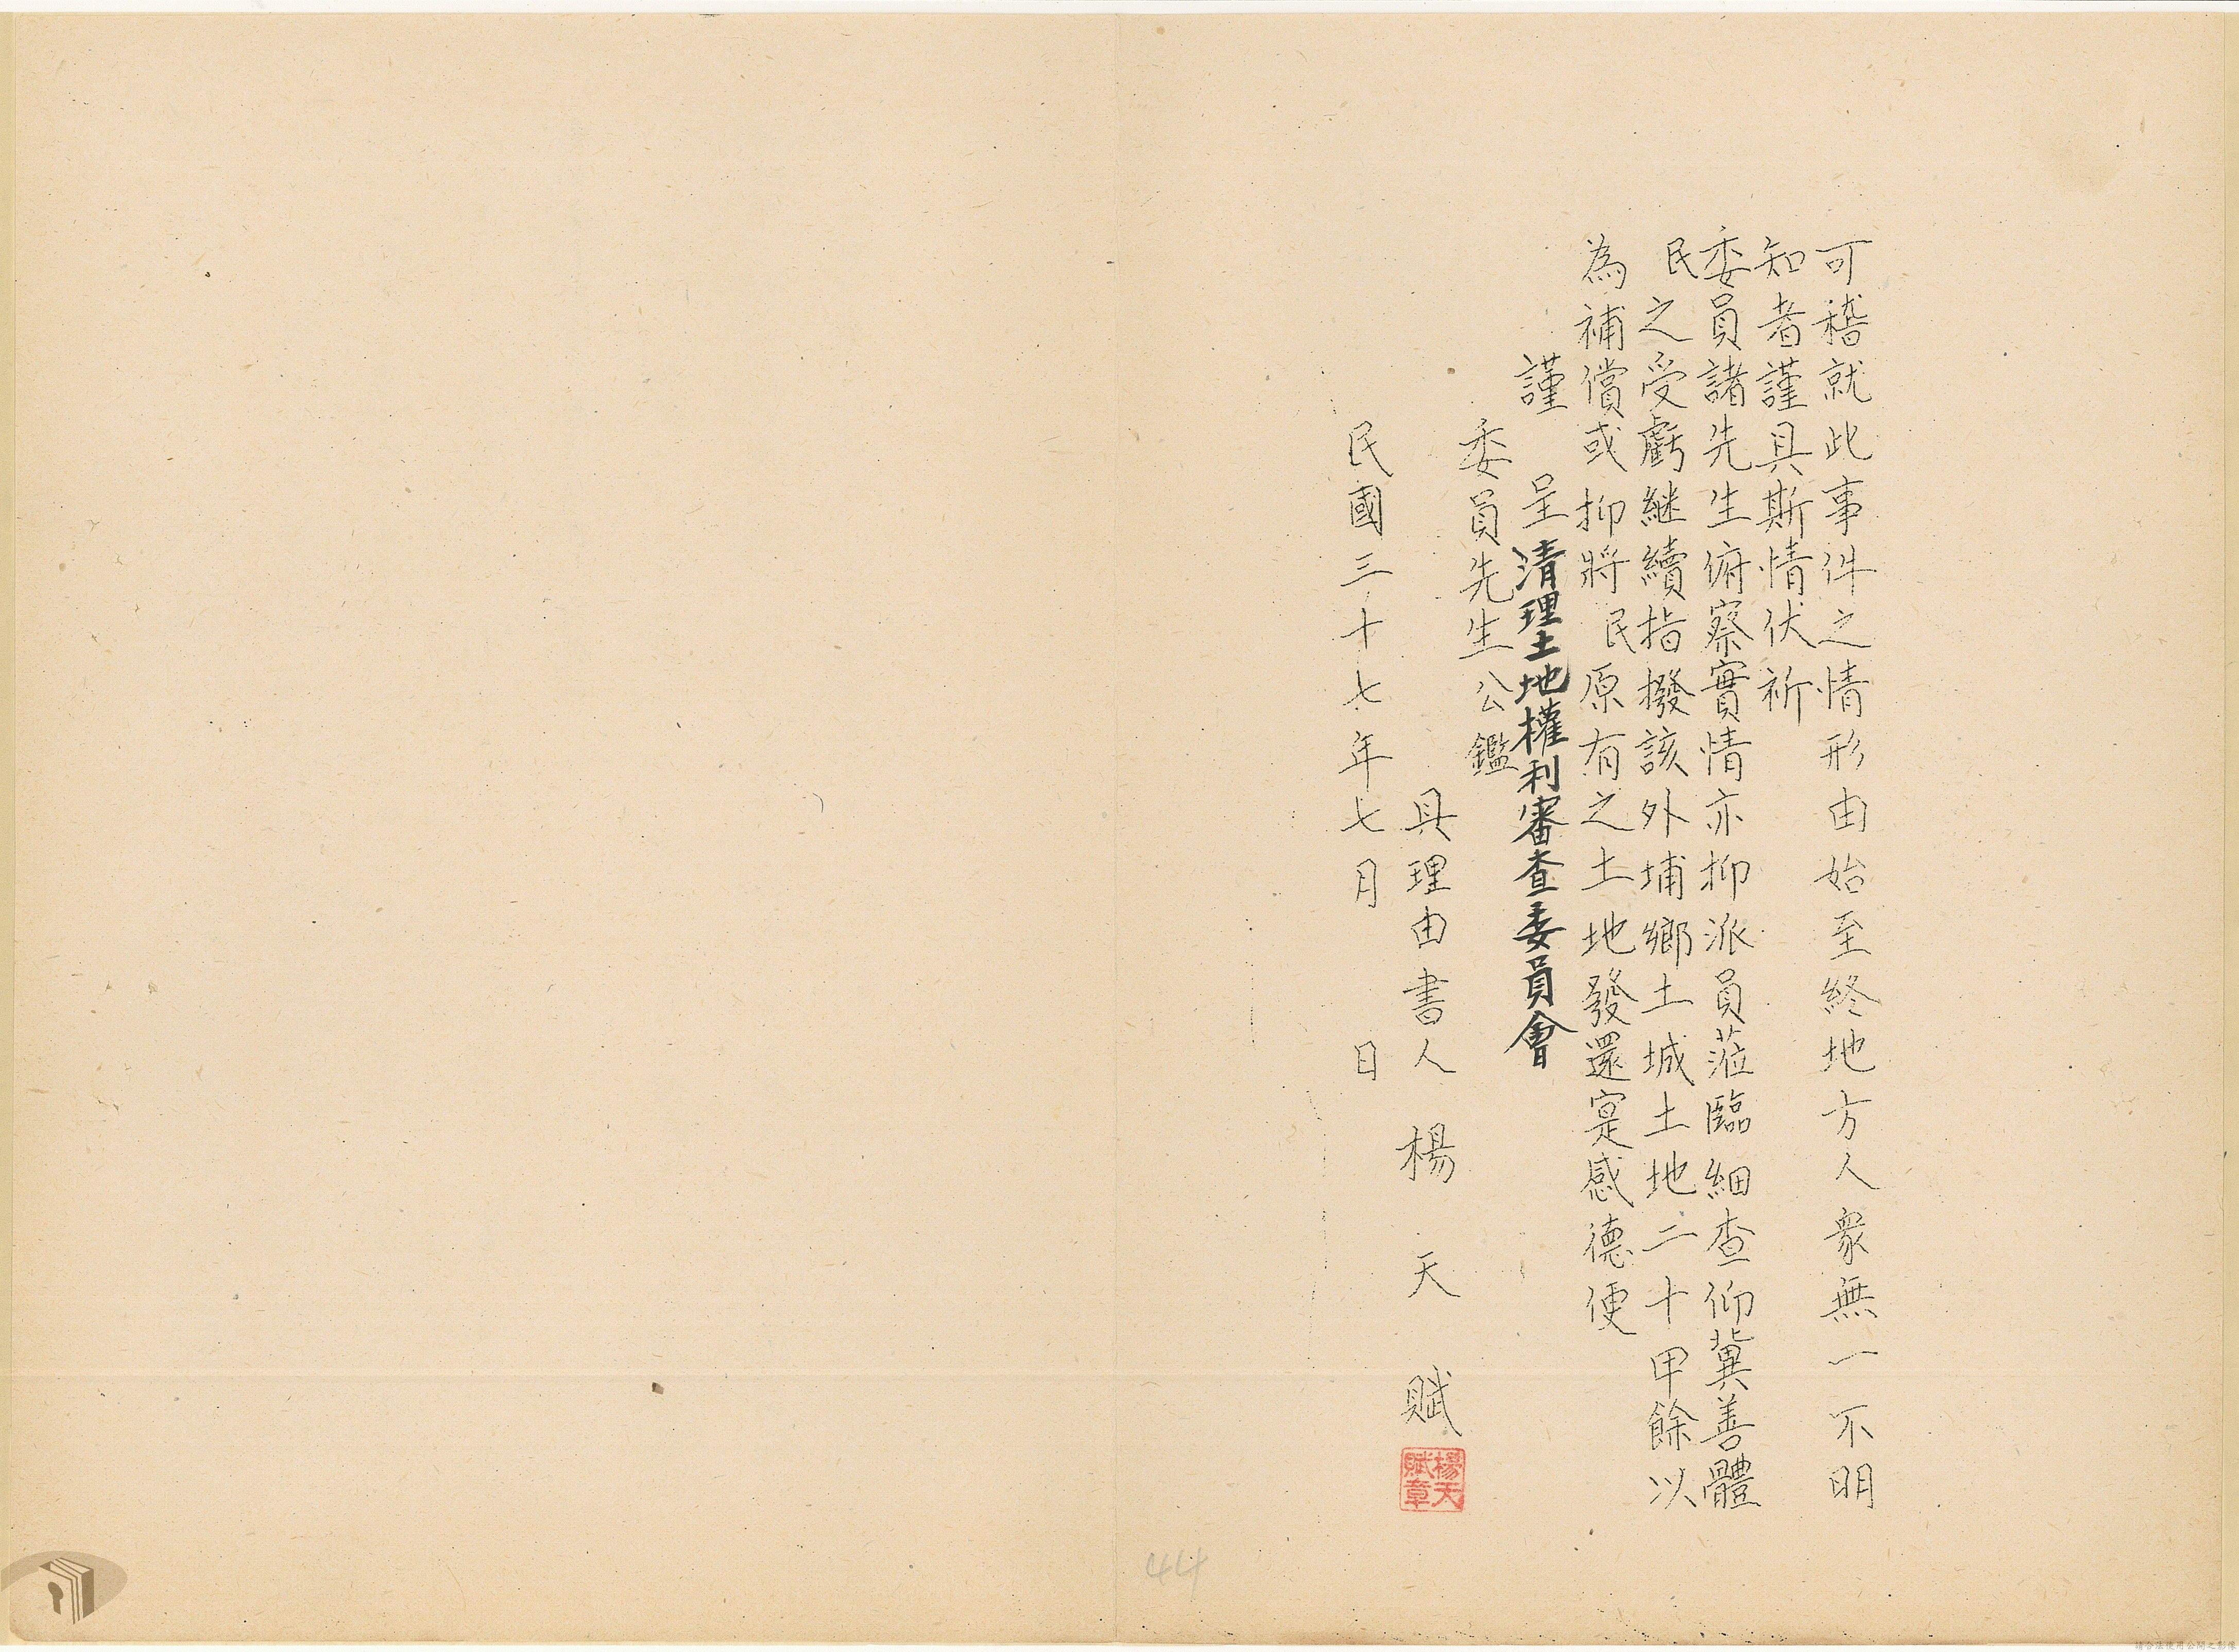 可稽就此事件之情形由始至終地方人衆無一不明
知者謹具斯情伏祈
委員諸先生俯察實情亦抑派員蒞臨細查仰冀善體
民之受虧継續指撥該外埔鄉土城土地二十甲餘以
為補償或抑將民原有之土地發還寔感德便
謹呈清理土地權利審查委員會
委員先生公鑑
具理由書人楊天賦
楊天賦章
民國三十七年七月日
44